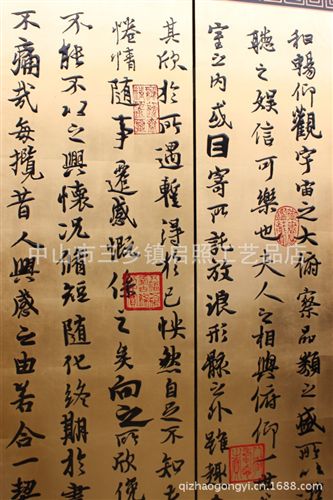 和暢仰觀宇宙之大俯察品類之盛所以
聽之娛信可樂也夫人之相與俯仰一
室之內或因寄所託放浪形骸之外雖趣
其欣於所遇暫得於己怏然自足不知
惓情隨事遷感慨係之矣向之所欣俛
不能不以之興懷況脩短隨化終期於盡
不痛哉每攬昔人興感之由若合一契
中山市三乡镇启照工艺品店
qizhaogongyi.cn.1688.com